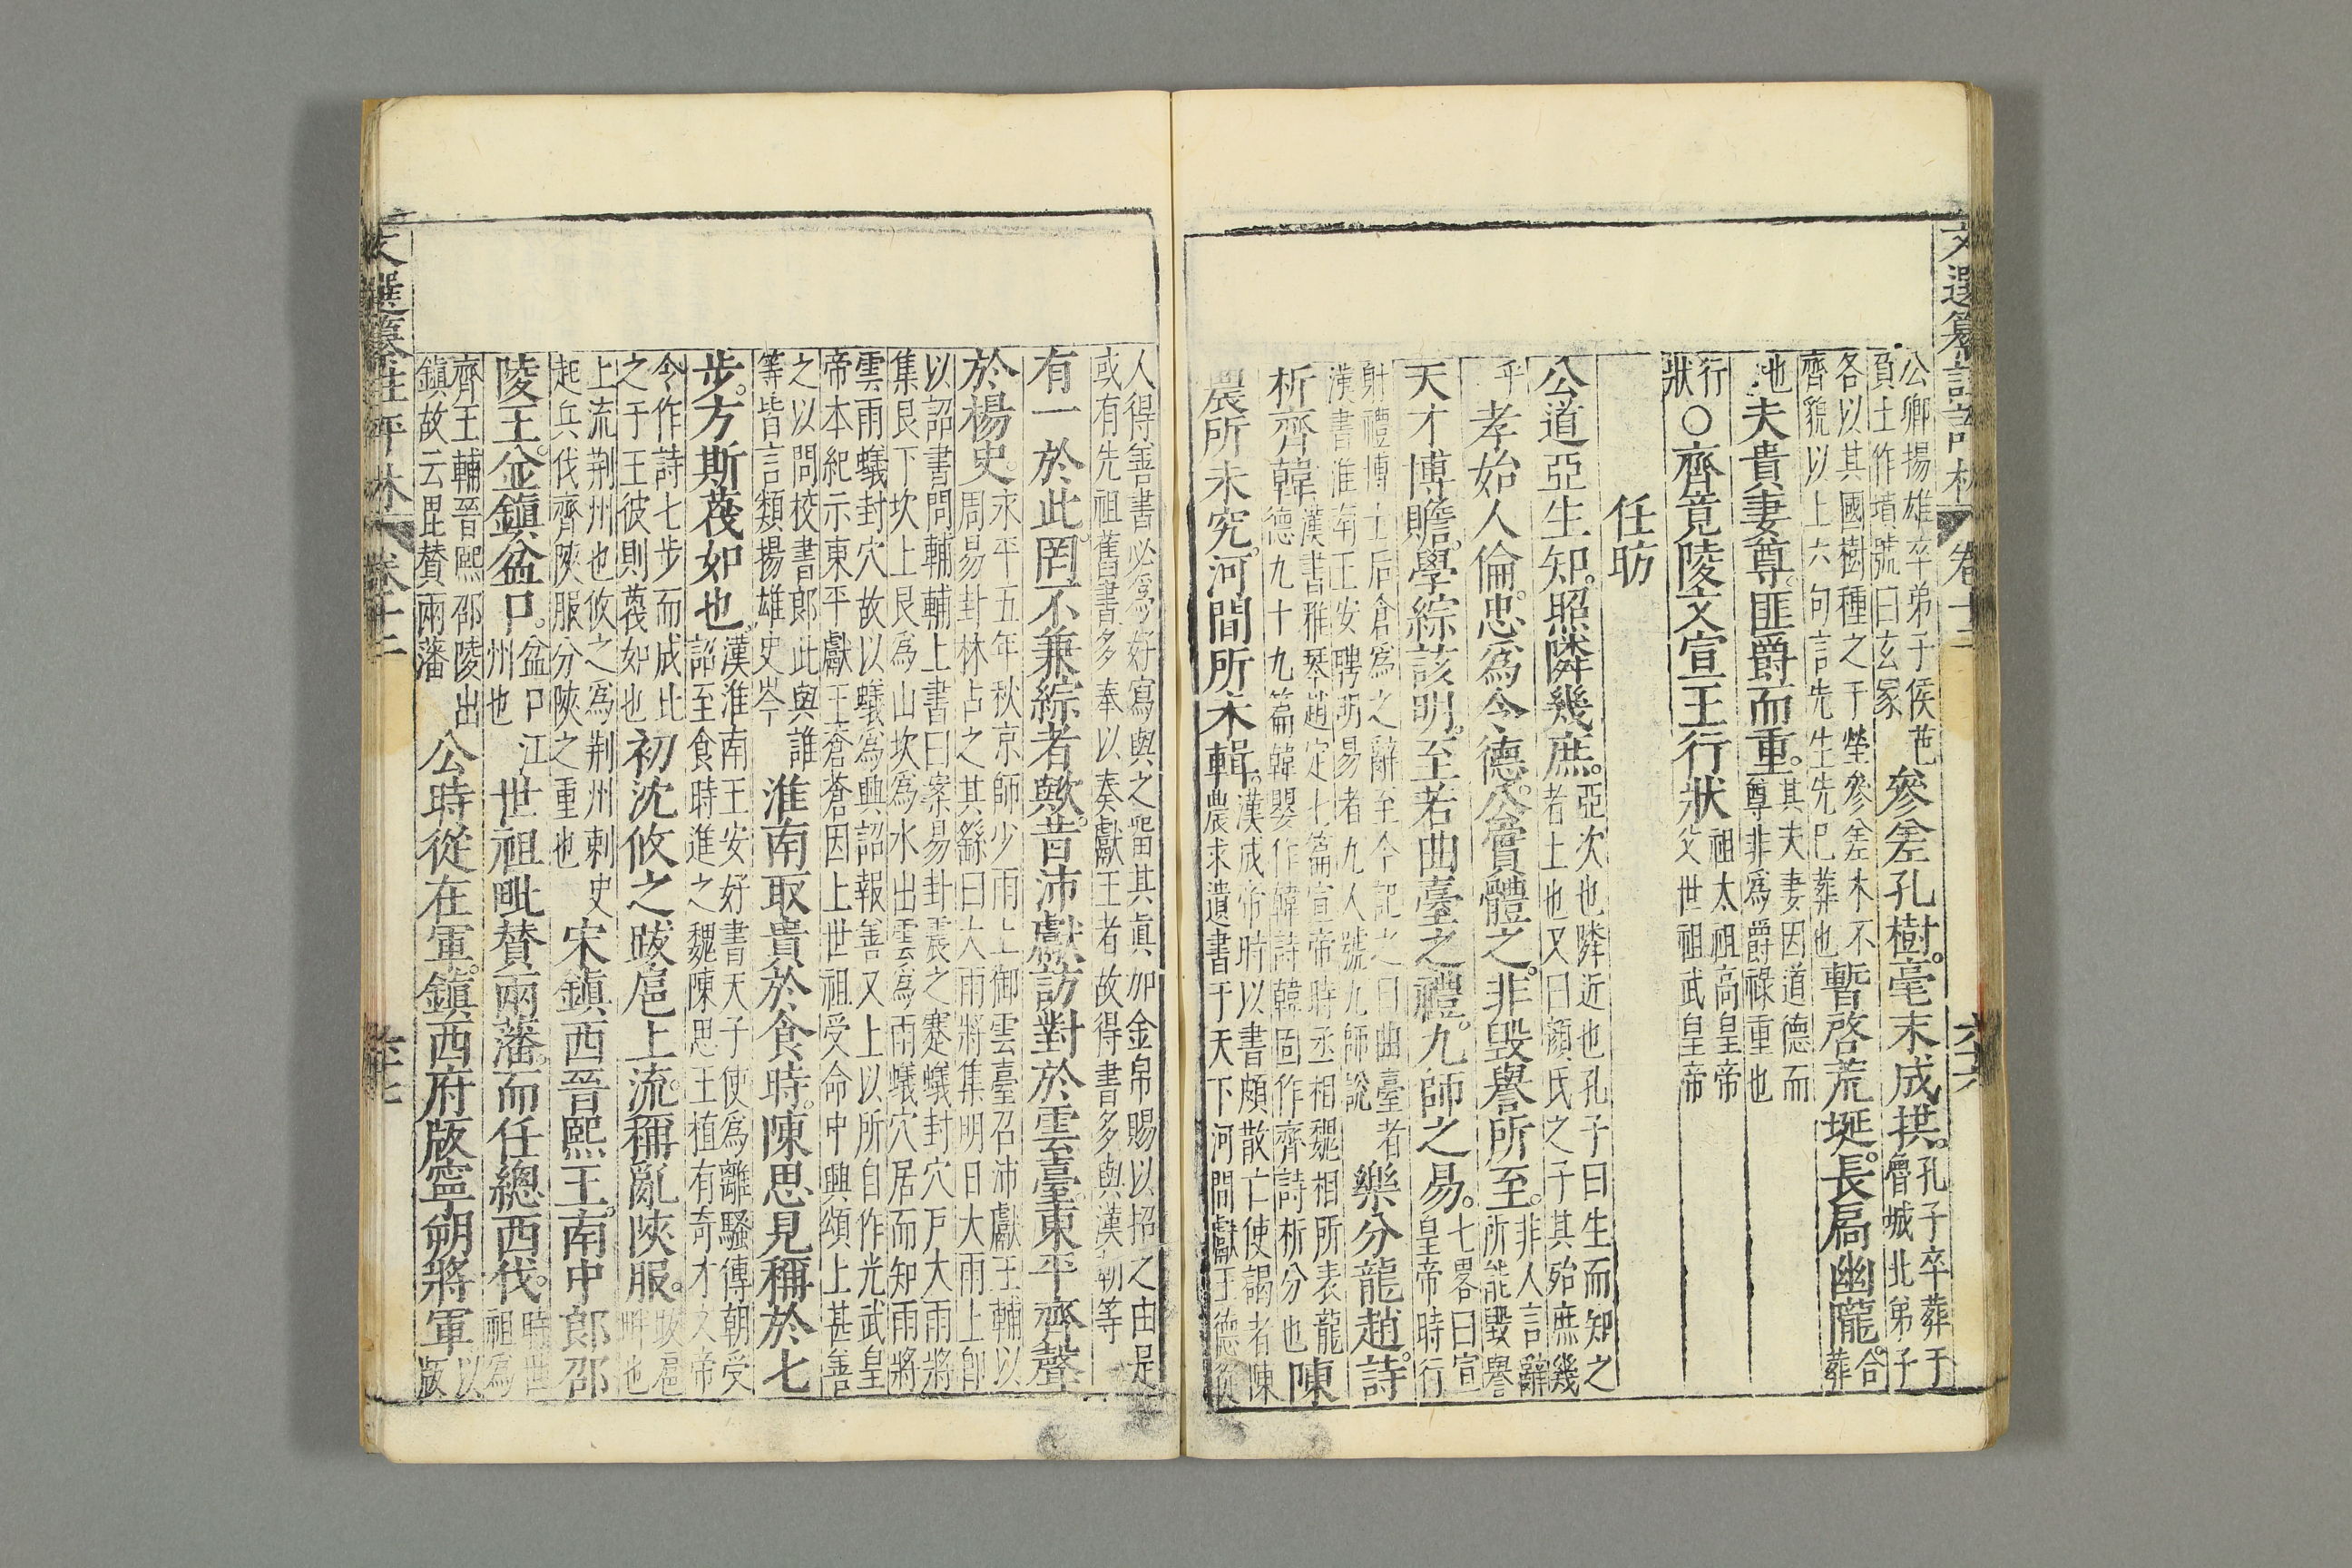 文選纂註評林 卷十二 六十六
公卿揚雄卒弟子侯芭
負土作墳號曰玄冢
參差孔樹。毫末成拱。
孔子卒葬于
魯城北弟子
各以其國樹種之于塋參差木不
齊貌以上六句言先生先已葬也
暫啓荒埏。長扃幽隴。
合
葬
也夫貴妻尊。匪爵而重。
其夫妻因道德而
尊非爲爵祿重也
行
狀
○齊竟陵文宣王行狀
祖太祖高皇帝
父世祖武皇帝
任昉
公道亞生知。照隣幾庶。
亞次也隣近也孔子曰生而知之
者上也又曰顔氏之子其殆庶幾
乎
孝始人倫。忠爲令德。公實體之。非毀譽所至。
非人言辭
所能毀譽
天才博贍。學綜該明。至若曲臺之禮。九師之易。
七畧曰宣
皇帝時行
射禮博士后倉爲之辭至今記之曰曲臺者
漢書淮南王安聘明易者九人號九師說
樂分龍趙。詩
析齊韓
漢書雅琴趙定七篇宣帝時丞相魏相所表龍
德九十九篇韓嬰作韓詩韓固作齊詩析分也
陳
農所未究。河間所未輯。
漢成帝時以書頗散亡使謁者陳
農求遺書于天下河間獻王德從
人得善書必爲好寫與之畱其眞加金帛賜以招之由是
或有先祖舊書多奉以奏獻王者故得書多與漢朝等
有一於此。罔不兼綜者歟。昔沛獻訪對於雲臺。東平齊聲
於楊史。
永平五年秋京師少雨上御雲臺召沛獻王輔以
周易卦林占之其繇曰大雨將集明日大雨上卽
以詔書問輔輔上書曰案易卦震之蹇蟻封穴戶大雨將
集艮下坎上艮爲山坎爲水出雲爲雨蟻穴居而知雨將
雲雨蟻封穴故以蟻爲興詔報善又上以所自作光武皇
帝本紀示東平獻王蒼蒼因上世祖受命中興頌上甚善
之以問校書郎此與誰
等皆言類揚雄史岑
淮南取貴於食時。陳思見稱於七
步。方斯蔑如也。
漢淮南王安好書天子使爲離騷傳朝受
詔至食時進之魏陳思王植有奇才文帝
令作詩七步而成比
之于王彼則蔑如也
初沈攸之跋扈上流。稱亂陝服。
跋扈
畔也
上流荆州也攸之爲荆州刺史
起兵伐齊陝服分陝之重也
宋鎮西晉熙王。南中郎邵
陵王。並鎮盆口。
盆口江
州也
世祖毗贊兩藩。而任總西伐。
時世
祖爲
齊王輔晉熙邵陵出
鎮故云毘贊兩藩
公時從在軍。鎮西府版寧朔將軍
以
版
文選纂註評林 卷十二 六十七